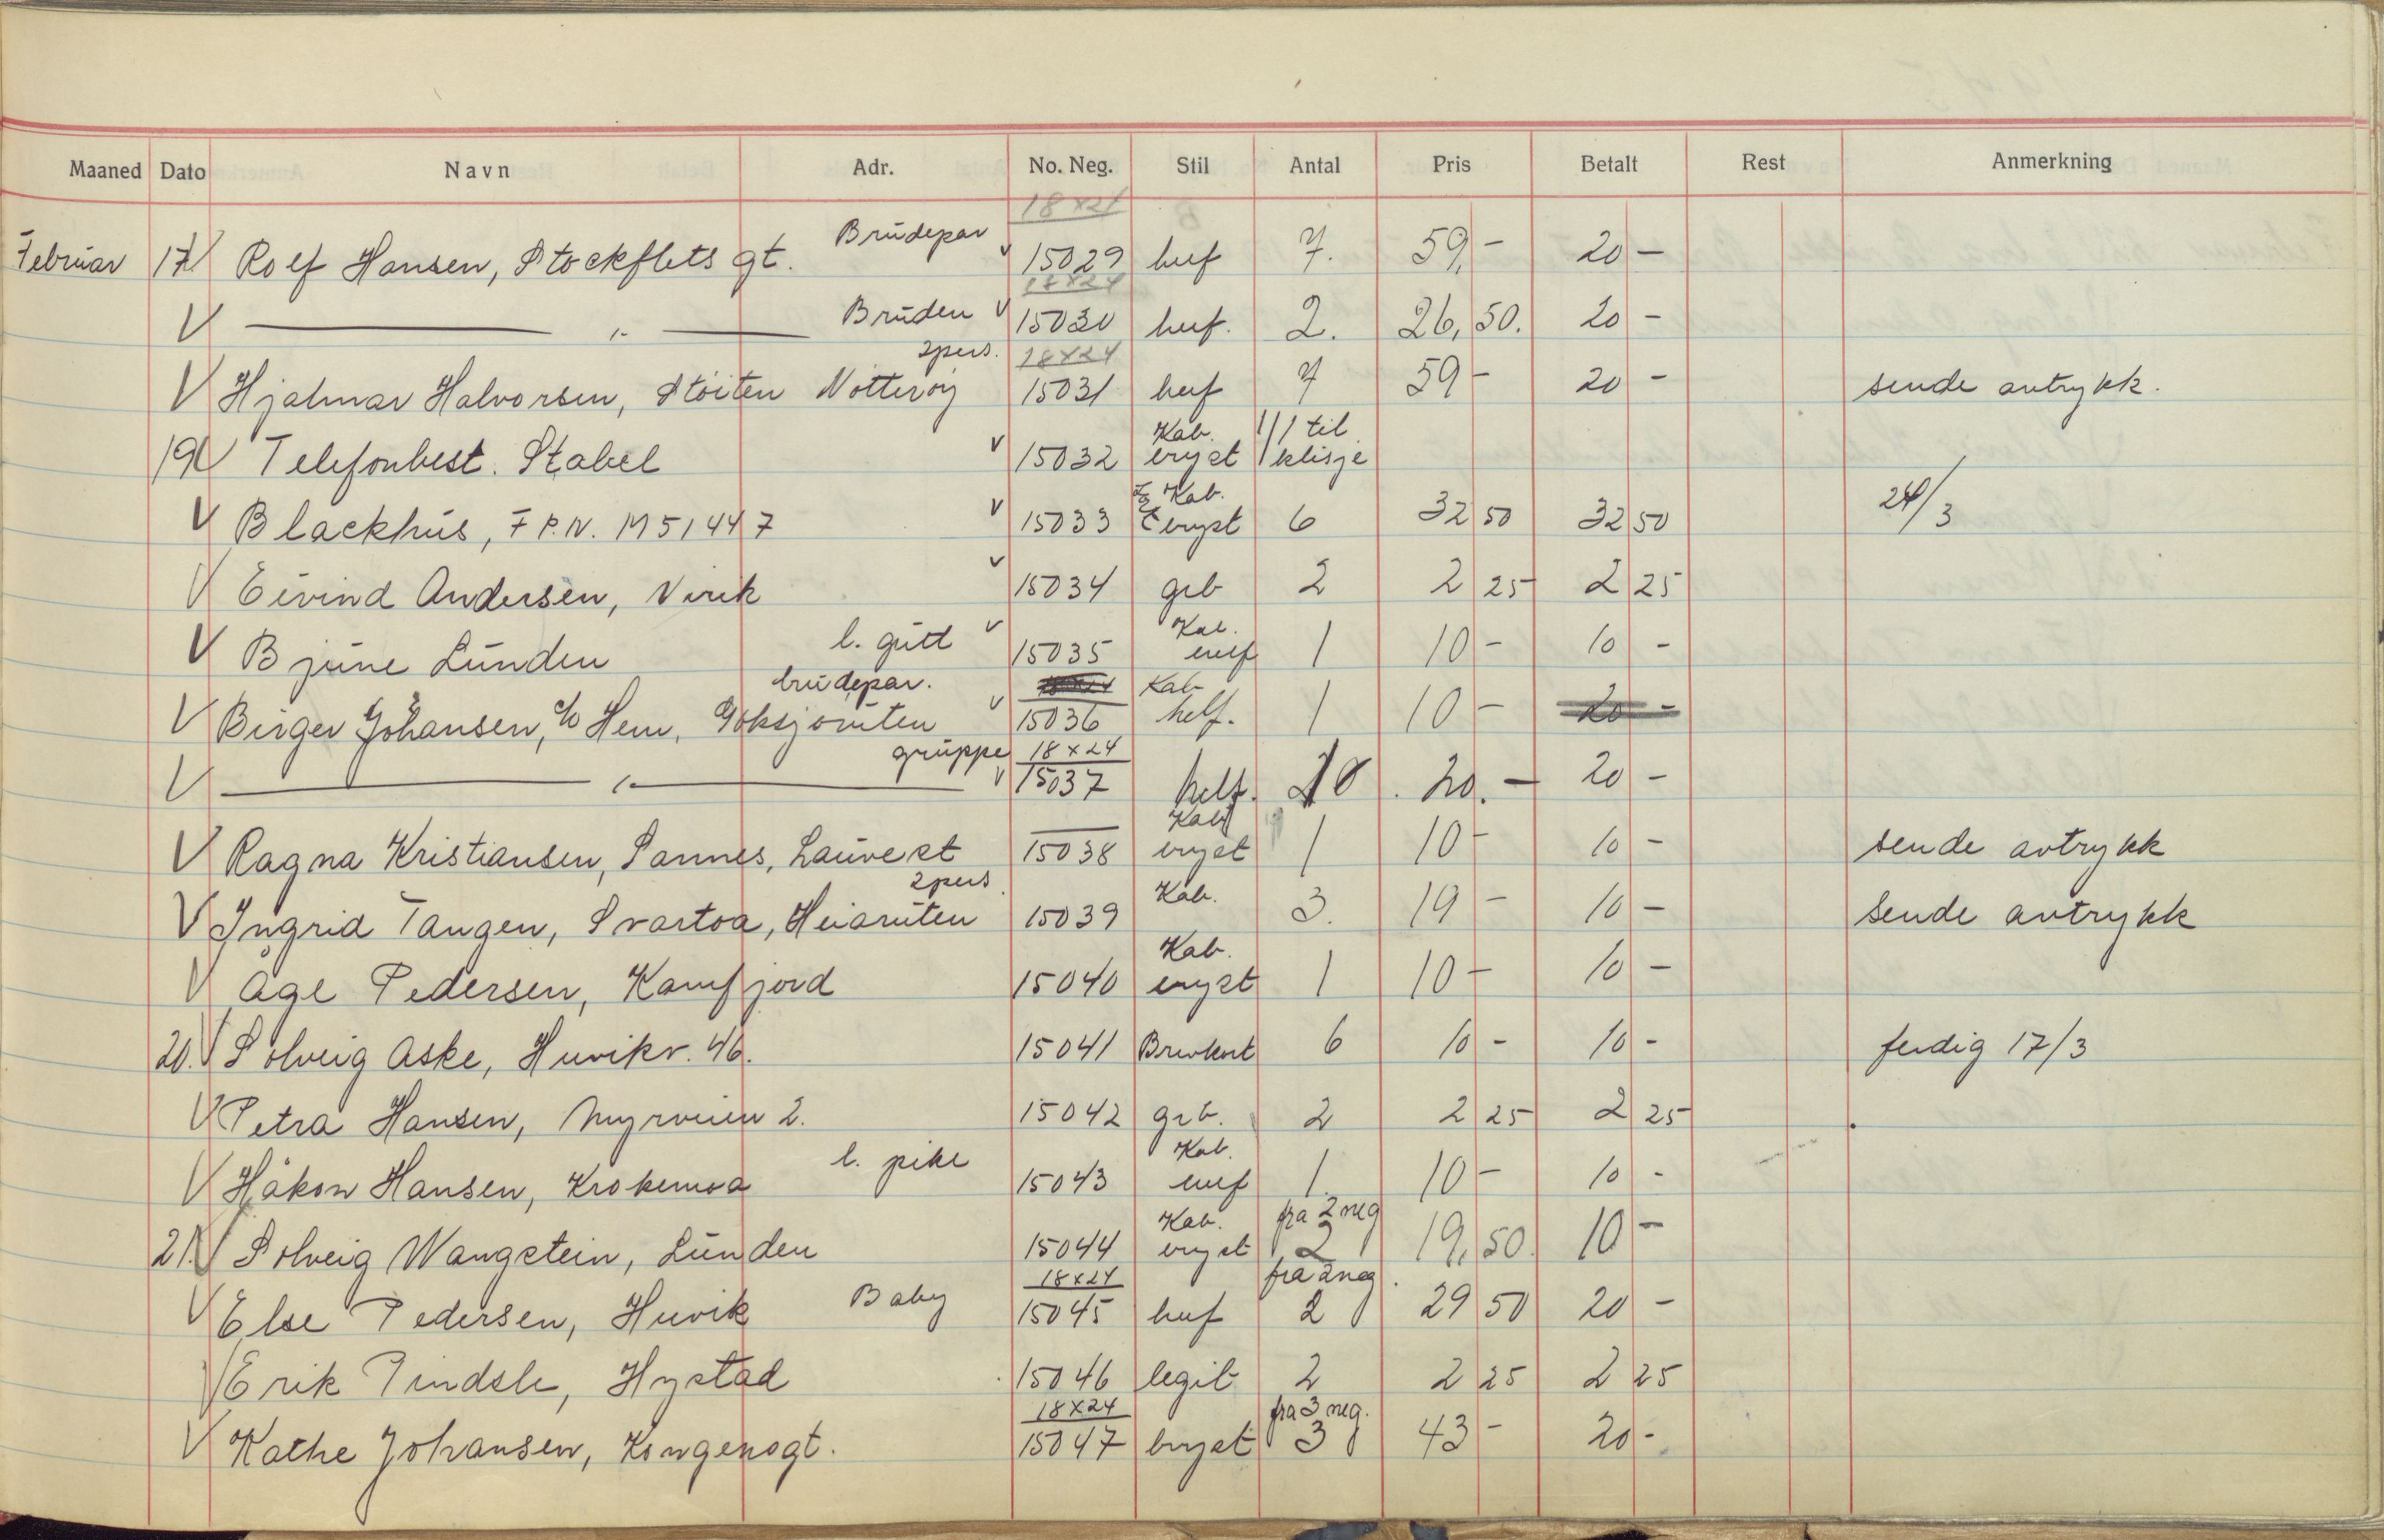 Maaned Dato Navn Adr. No. Neg. Stil Antal Pris Betalt Rest Anmerkning
18x24
Februar 17 V Rolf Hansen, Stockflets gt. Brudepar v 15029 huf 7. 59,- 20 -
18x24
V — " — Bruden v 15030 huf. 2. 26,50. 20 -
2pers. 18x24
V Hjalmar Halvorsen, Stöiten Nötteröy 15031 huf 7 59 - 20 - sende avtrykk.
Kab. 1/1 til
19 V Telefonbest. Stabel v 15032 bryst klisje
Kab.
V Blackhus, F.P.N. M 51447 v 15033 bryst 6 32 50 32 50 24/3
V Eivind Andersen, Virik v 15034 grb 2 2 25 2 25
Kab.
V Bjune Lunden l. gutt v 15035 huf 1 10 - 10 -
brudepar. 18x24 Kab
V Birger Johansen, c/o Hem, Goksjoruten v 15036 helf. 1 10 - 20 -
gruppe 18x24
V — " — v 15037 helf. 10. 20. - 20 -
Kab
V Ragna Kristiansen, Sannes, Lauvest 15038 bryst 1 10 - 10 - sende avtrykk
2pers. Kab.
V Ingrid Tangen, Svartoa, Heiaruten 15039 3. 19 - 10 - sende avtrykk
Kab.
V Åge Pedersen, Kamfjord 15040 bryst 1 10 - 10 -
20. V Solveig Aske, Huvikv. 46. 15041 Brevkort 6 10 - 10 - ferdig 17/3
V Petra Hansen, Myrveien 2. 15042 grb. 2 2 25 2 25
Kab.
V Håkon Hansen, Krokemoa l. pike 15043 huf 1. 10 - 10 -
Kab. fra 2 neg
21. V Solveig Wangstein, Lunden 15044 bryst 2 19,50. 10 -
18x24 fra 2 neg.
V Else Pedersen, Huvik Baby 15045 huf 2 29 50 20 -
V Erik Pindsle, Hystad 15046 legit 2 2 25 2 25
18x24 fra 3 neg.
V Kathe Johansen, Kongensgt. 15047 bryst 3 43 - 20 -